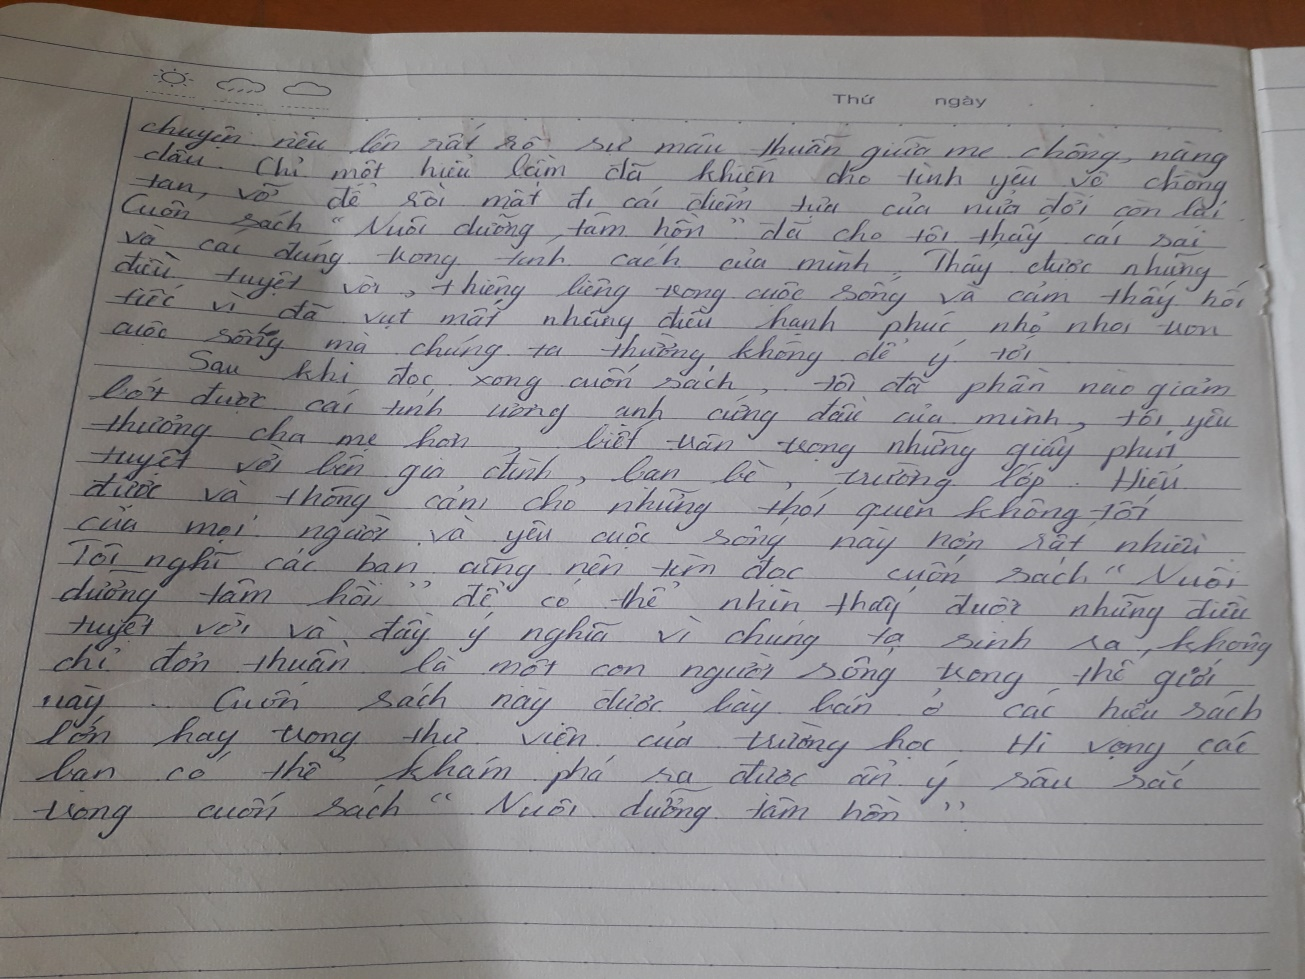 Thứ ngày
chuyện nêu lên rất rõ sự mâu thuẫn giữa mẹ chồng, nàng
dâu. Chỉ một hiểu lầm đã khiến cho tình yêu vợ chồng
tan, vỡ để rồi mất đi cái điểm tựa của nửa đời còn lại.
Cuốn sách "Nuôi dưỡng tâm hồn" đã cho tôi thấy cái sai
và cái đúng trong tính cách của mình, Thấy được những
điều tuyệt vời, thiêng liêng trong cuộc sống và cảm thấy hối
tiếc vì đã vụt mất những điều hạnh phúc nhỏ nhoi
cuộc sống mà chúng ta thường không để ý tới
Sau khi đọc xong cuốn sách, tôi đã phần nào giảm
bớt được cái tính ương anh cứng đầu của mình, tôi yêu
thương cha mẹ hơn, biết trân trọng những giây phút
tuyệt vời bên gia đình, bạn bè, trường lớp. Hiểu
được và thông cảm cho những thói quen không tốt
của mọi người và yêu cuộc sống này hơn rất nhiều
Tôi nghĩ các bạn cũng nên tìm đọc cuốn sách "Nuôi
dưỡng tâm hồn" để có thể nhìn thấy được những điều
tuyệt vời và đầy ý nghĩa vì chúng ta sinh ra, không
chỉ đơn thuần là một con người sống trong thế giới
này. Cuốn sách này được bày bán ở các hiệu sách
lớn hay trong thư viện của trường học. Hi vọng các
bạn có thể khám phá ra được ẩn ý sâu sắc
trong cuốn sách "Nuôi dưỡng tâm hồn"